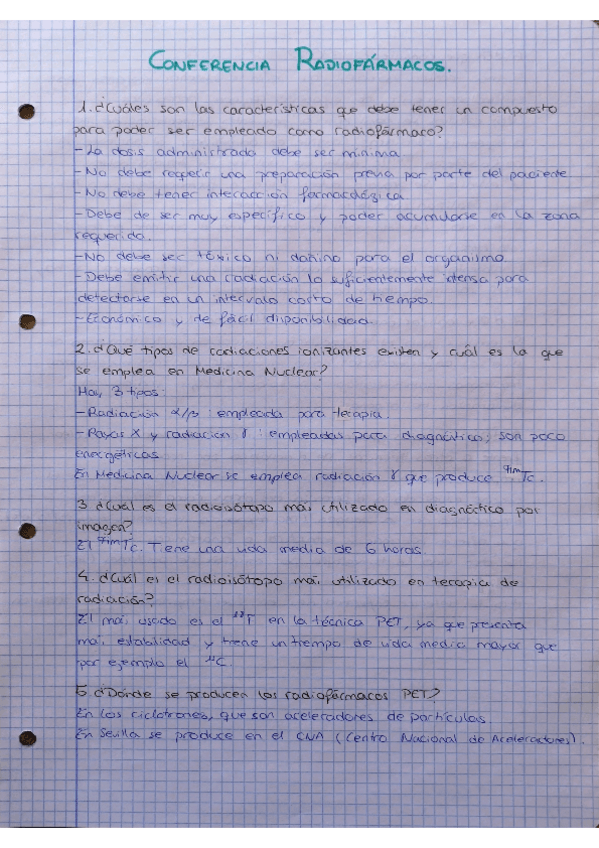 CONFERENCIA RADIOFÁRMACOS.
1. ¿Cuáles son las características que debe tener un compuesto
para poder ser empleado como radiofármaco?
- La dosis administrada debe ser mínima
- No debe requerir una preparación previa por parte del paciente
- No debe tener interacción farmacológica
- Debe de ser muy específico y poder acumularse en la zona
requerida.
- No debe ser tóxico ni dañino para el organismo
- Debe emitir una radiación lo suficientemente intensa para
detectarse en un intervalo corto de tiempo.
- Económico y de fácil disponibilidad.
2. ¿Qué tipos de radiaciones ionizantes existen y cuál es la que
se emplea en Medicina Nuclear?
Hay 3 tipos:
- Radiación α/β: empleada para terapia.
- Rayos X y radiación γ: empleadas para diagnóstico; son poco
energéticas
En Medicina Nuclear se emplea radiación γ que produce Tc.
3. ¿Cuál es el radioisótopo más utilizado en diagnóstico por
imagen?
El Tc. Tiene una vida media de 6 horas.
4. ¿Cuál es el radioisótopo más utilizado en terapia de
radiación?
El más usado es el en la técnica PET, ya que presenta
más estabilidad y tiene un tiempo de vida media mayor que
por ejemplo el ¹¹C.
5. ¿Dónde se producen los radiofármacos PET?
En los ciclotrones, que son aceleradores de partículas.
En Sevilla se produce en el CNA (Centro Nacional de Aceleradores).